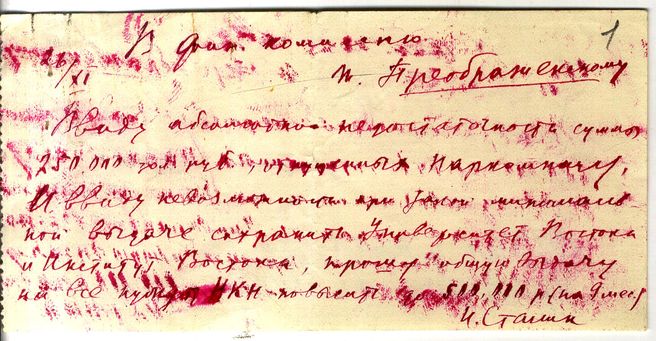 В фин. комиссию
1
26/XI
т. Преображенскому
Ввиду абсолютной недостаточность суммы
250.000 зол. руб., отпущенных Наркомнацу,
и ввиду невозможность при такой минималь
ной выдаче сохранить Университет Востока
и Институт Востока, прошу общую выдачу
на все нужды НКН повысить до 500,000 р (на 9 мес)
И. Сталин